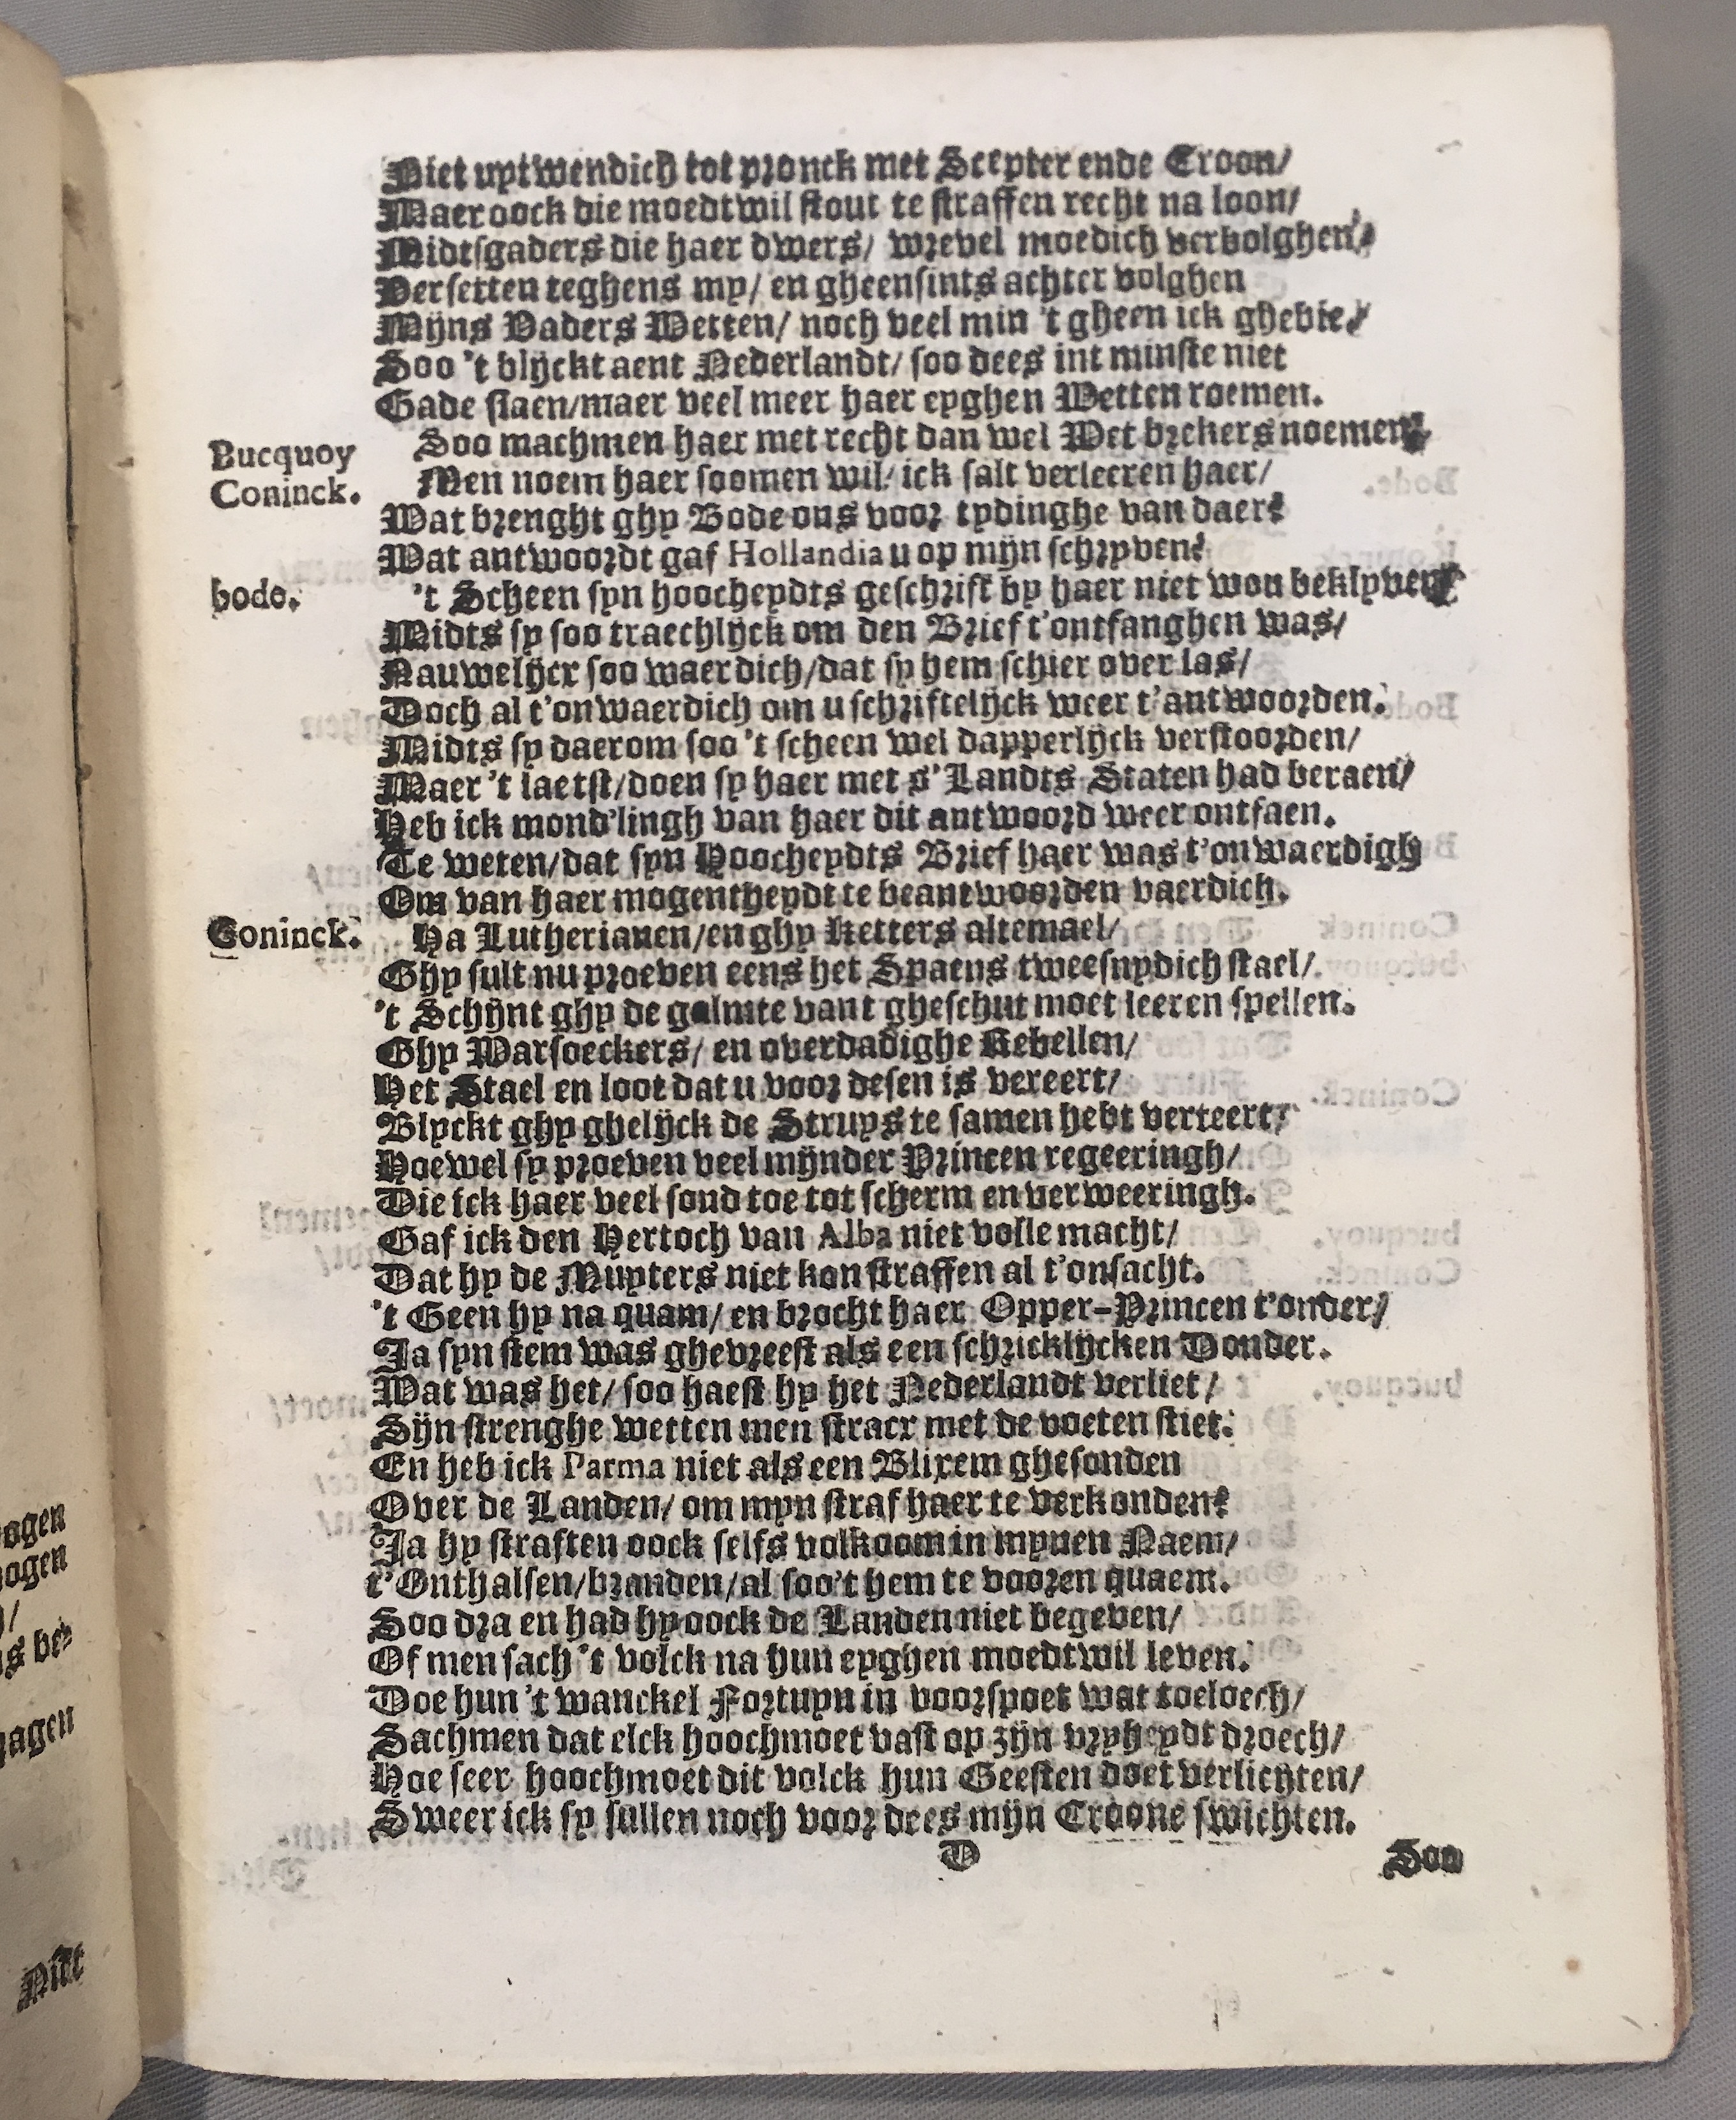 Niet uytwendich tot pronck met Scepter ende Croon/
Maer oock die moedtwil stout te straffen recht na loon/
Midtsgaders die haer dwers/ wrevel moedich verbolghen/
Versetten teghens my/ en gheensints achter volghen
Mijns Vaders Wetten/ noch veel min 't gheen ick ghebie/
Soo 't blijckt aent Nederlandt/ soo dees int minste niet
Gade slaen/maer veel meer haer eyghen Wetten roemen.
Bucquoy Soo machmen haer met recht dan wel Wet brekers noemen.
Coninck. Men noem haer soomen wil/ ick salt verleeren haer/
Wat brenght ghy Bode ons voor tydinghe van daer?
Wat antwoordt gaf Hollandia u op mijn schryven?
bode. 't Scheen syn hoocheydts geschrift by haer niet wou beklyven
Midts sy soo traechlijck om den Brief t'ontfanghen was/
Nauwelijcx soo waerdich/dat sy hem schier over las/
Doch al t'onwaerdich om u schriftelijck weer t'antwoorden.
Midts sy daerom soo 't scheen wel dapperlijck verstoorden/
Maer 't laetst/doen sy haer met s'Landts Staten had beraen/
Heb ick mond'lingh van haer dit antwoord weer ontfaen.
Te weten/dat syn Hoocheydts Brief haer was t'onwaerdigh
Om van haer mogentheydt te beantwoorden vaerdich.
Coninck. Ha Lutherianen/en ghy Ketters altemael/
Ghy sult nu proeven eens het Spaens tweesnydich stael/
't Schijnt ghy de galmte vant gheschut moet leeren spellen.
Ghy Marsoeckers/ en overdadighe Rebellen/
Het Stael en loot dat u voor desen is vereert/
Blyckt ghy ghelijck de Struys te samen hebt verteert/
Hoewel sy proeven veel mijnder Princen regeeringh/
Die ick haer veel sond toe tot scherm en verweeringh.
Gaf ick den Hertoch van Alba niet volle macht/
Dat hy de Muyters niet kon straffen al t'onsacht.
't Geen hy na quam/ en brocht haer Opper-Princen t'onder/
Ja syn stem was ghevreest als een schricklijcken Donder.
Wat was het/ soo haest hy het Nederlandt verliet/
Sijn strenghe wetten men stracx met de voeten stiet.
En heb ick Parma niet als een Blixem ghesonden
Over de Landen/ om myn straf haer te verkonden?
Ja hy straften oock selfs volkoom in mynen Naem/
t'Onthalsen/branden/al soo't hem te vooren quaem.
Soo dra en had hy oock de Landen niet begeven/
Of men sach 't volck na hun eyghen moedtwil leven.
Doe hun 't wanckel Fortuyn in voorspoet wat toeloech/
Sachmen dat elck hoochmoet vast op zijn vryheydt droech/
Hoe seer hoochmoet dit volck hun Geesten doet verlichten/
Sweer ick sy sullen noch voor dees mijn Croone swichten.
D Soo
ogen
ogen
jagen
Niet